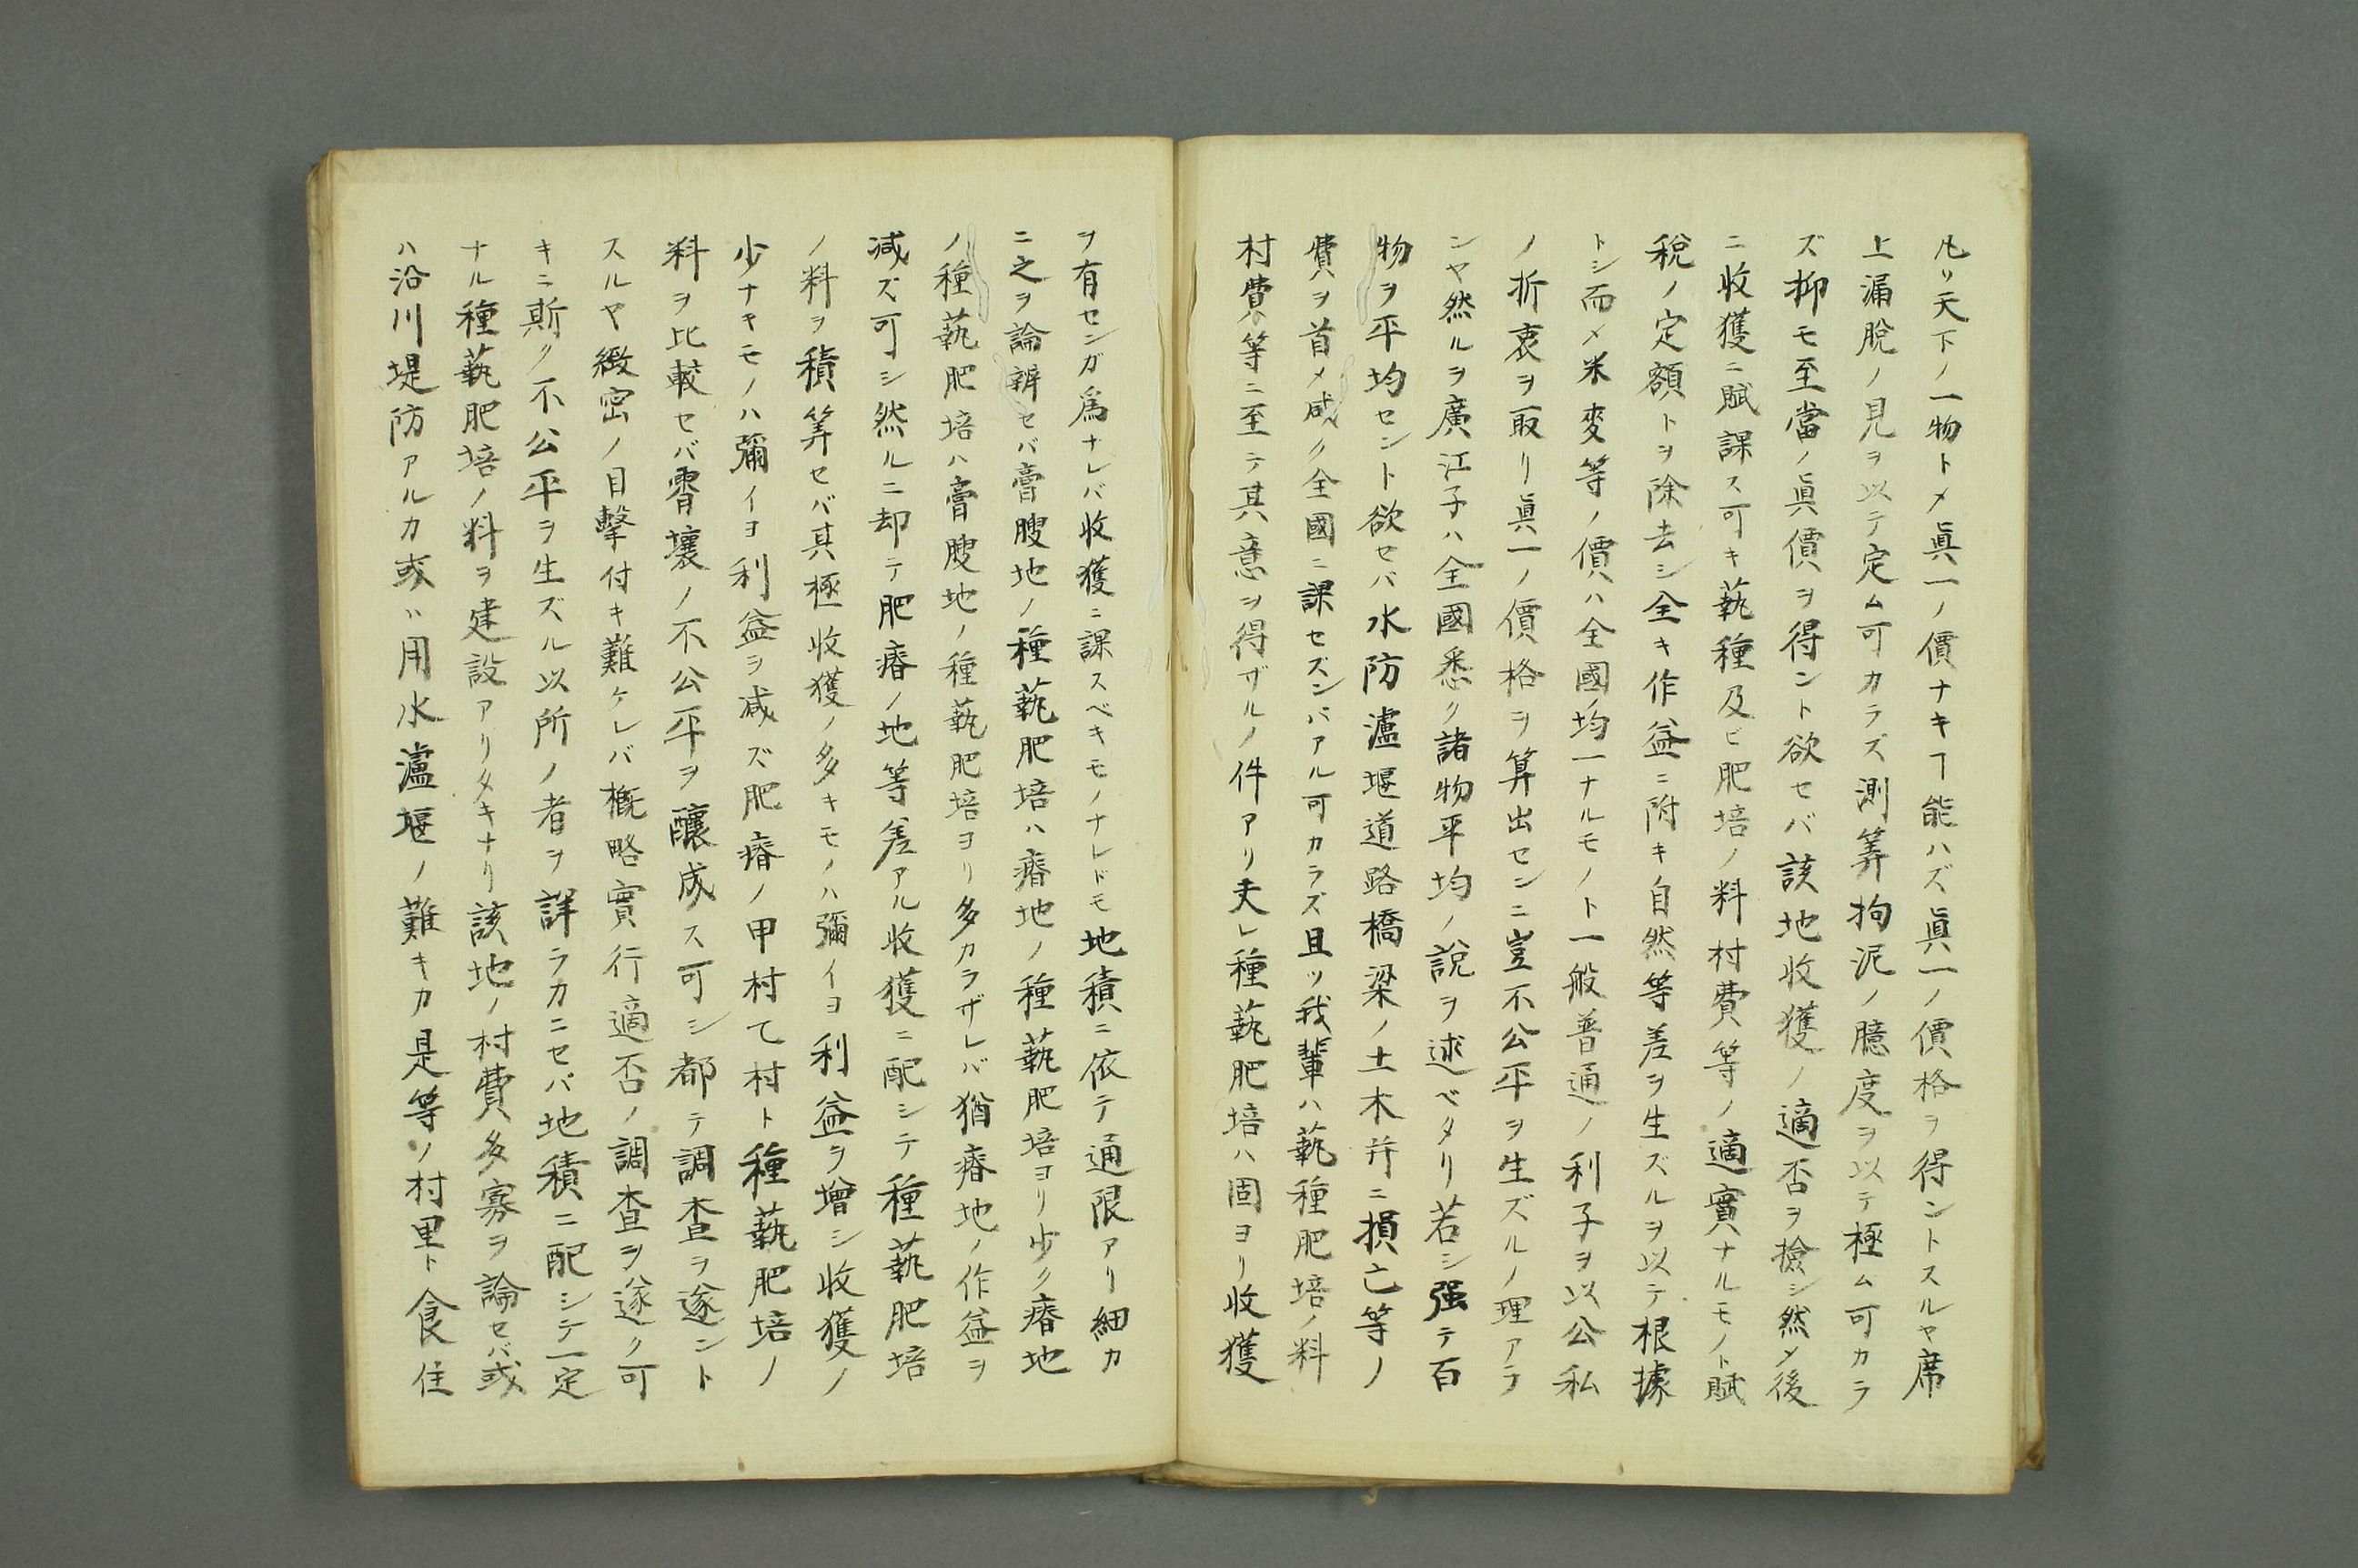 凡リ天下ノ一物トメ眞一ノ價ナキヿ能ハズ眞一ノ價格ヲ得ントスルヤ席
上漏脫ノ見ヲ以テ定ム可カラズ測筭拘泥ノ臆度ヲ以テ極ム可カラ
ズ抑モ至當ノ眞價ヲ得ント欲セバ該地收獲ノ適否ヲ撿シ然メ後
ニ收獲ニ賦課ス可キ蓺種及ビ肥培ノ料村費等ノ適實ナルモノト賦
稅ノ定額トヲ除去シ全キ作益ニ附キ自然等差ヲ生ズルヲ以テ根據
トシ而メ米麥等ノ價ハ全國均一ナルモノト一般普通ノ利子ヲ以公私
ノ折衷ヲ取リ眞一ノ價格ヲ算出センニ豈不公平ヲ生ズルノ理アラ
ンヤ然ルヲ廣江子ハ全國悉ク諸物平均ノ說ヲ述ベタリ若シ强テ百
物ヲ平均セント欲セバ水防瀘堰道路橋梁ノ土木幷ニ損亡等ノ
費ヲ首メ咸ク全國ニ課セズンバアル可カラズ且ツ我輩ハ蓺種肥培ノ料
村費等ニ至テ其意ヲ得ザルノ件アリ夫レ種蓺肥培ハ固ヨリ收獲
ヲ有センガ爲ナレバ收獲ニ課スベキモノナレドモ地積ニ依テ通限アリ細カ
ニ之ヲ論辨セバ膏腴地ノ種蓺肥培ハ瘠地ノ種蓺肥培ヨリ少ク瘠地
ノ種蓺肥培ハ膏腴地ノ種蓺肥培ヨリ多カラザレバ猶瘠地ノ作益ヲ
減ズ可シ然ルニ却テ肥瘠ノ地等差アル收獲ニ配シテ種蓺肥培
ノ料ヲ積筭セバ其極收獲ノ多キモノハ彌イヨ利益ヲ增シ收獲ノ
少ナキモノハ彌イヨ利益ヲ減ズ肥瘠ノ甲村乙村ト種蓺肥培ノ
料ヲ比較セバ霄壤ノ不公平ヲ釀成ス可シ都テ調査ヲ遂ント
スルヤ緻密ノ目擊付キ難ケレバ概略實行適否ノ調査ヲ遂ク可
キニ斯ク不公平ヲ生ズル以所ノ者ヲ詳ラカニセバ地積ニ配シテ一定
ナル種蓺肥培ノ料ヲ建設アリタキナリ該地ノ村費多寡ヲ論セバ或
ハ沿川堤防アルカ或ハ用水瀘堰ノ難キカ是等ノ村里ト食住